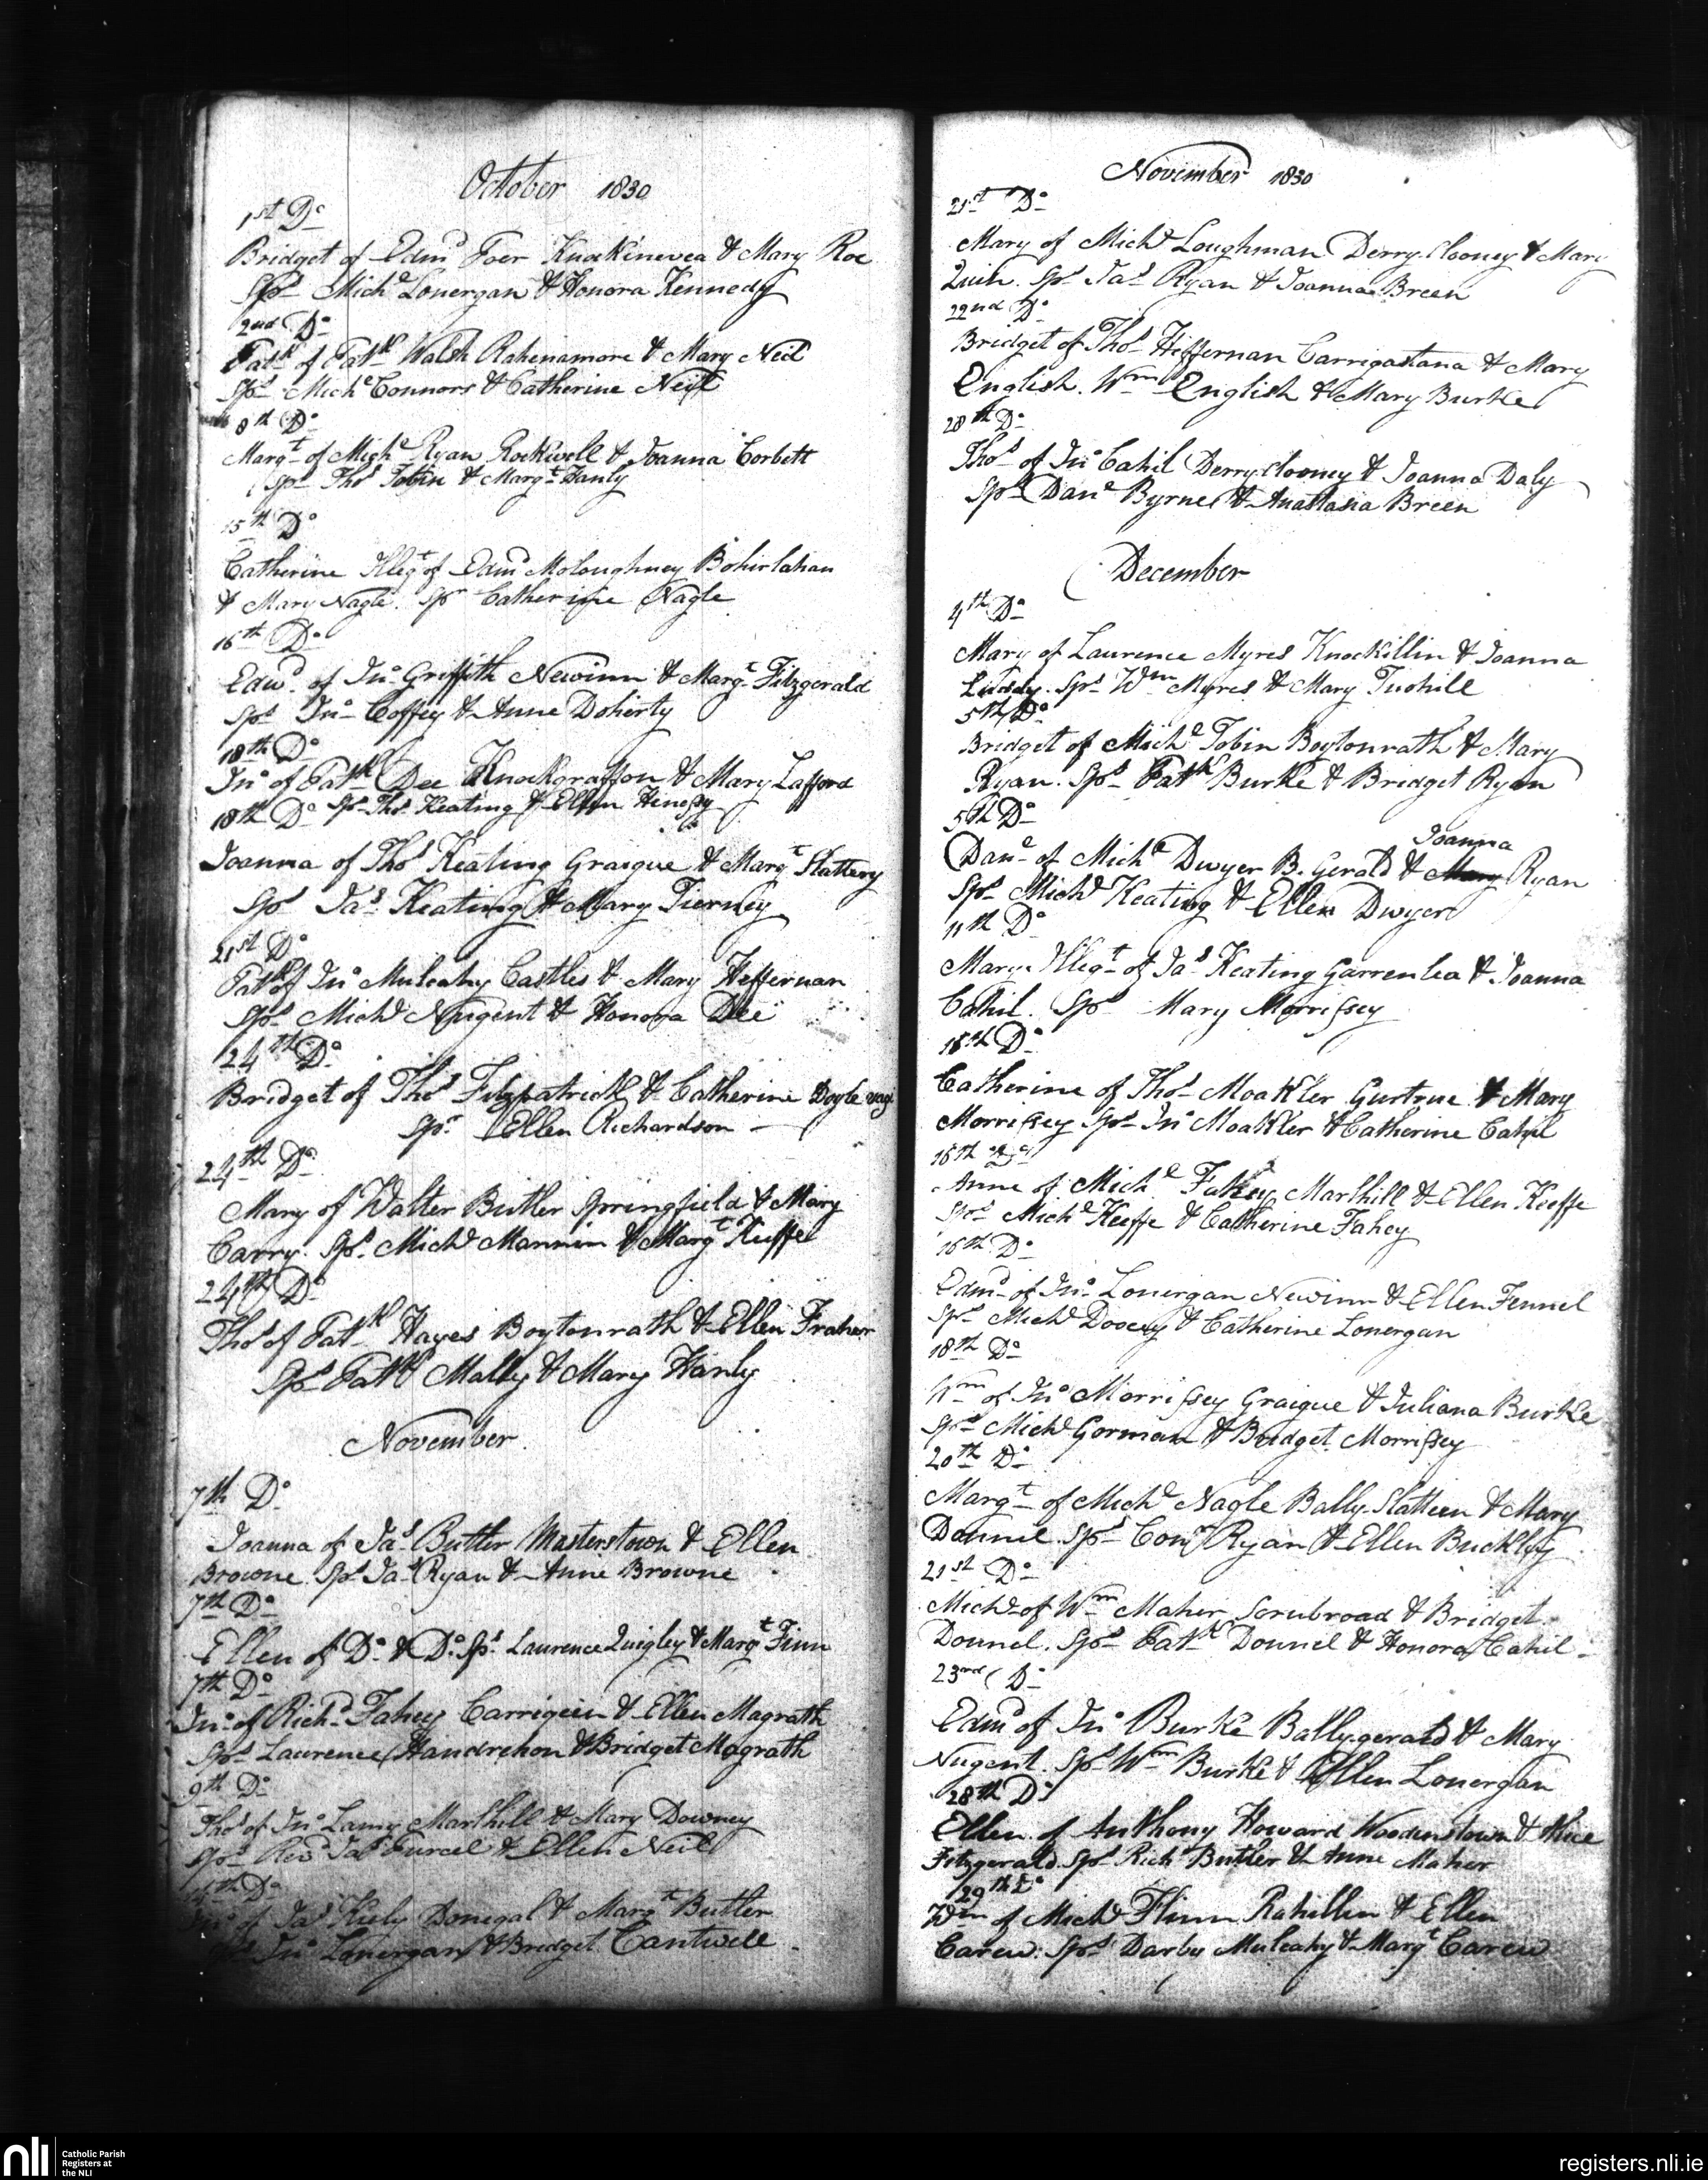 October 1830
1st Do
Bridget of Edmd Foer Knockinevea & Mary Roe
Sps Michl Lonergan & Honora Kennedy
2nd Do
Patk of Patk Walsh Rahenamore & Mary Neil
Sps Michl Connors & Catherine Neil
8th Do
Margt of Michl Ryan Rockwell & Joanna Corbett
Sps Thos Tobin & Margt Hanly
15th Do
Catherine Illegt of Edmd Moloughney Bohirlahan
& Mary Nagle. Spr Catherine Nagle
16th Do
Edwd of Jno Griffith Newinn & Margt Fitzgerald
Sps Jno Coffey & Anne Doherty
18th Do
Jno of Patk Dee Knockgraffon & Mary Lafford
18th Do Sps Thos Keating & Ellen Henesy
Joanna of Thos Keating Graigue & Margt Slattery
Sps Jas Keating & Mary Tierney
21st Do
Patk of Jno Mulcahy Castles & Mary Heffernan
Sps Michl Nugent & Honora Dee
24th Do
Bridget of Thos Fitzpatrick & Catherine Doyle vag
Spr Ellen Richardson
24th Do
Mary of Walter Butler Springfield & Mary
Carry. Sps Michl Mannin & Margt Kuffe
24th Do
Thos of Patk Hayes Boytonrath & Ellen Fraher
Sps Patk Mally & Mary Hanly
November
7th Do
Joanna of Jas Butler Masterstown & Ellen
Browne Sps Jas Ryan & Anne Browne
7th Do
Ellen of Do & Do. Sps Laurence Quigley & Margt Finn
7th Do
Jno of Richd Fahey Carrigeen & Ellen Magrath
Sps Laurence Handrehon & Bridget Magrath
9th Do
Thos of Jno Lamy Marlhill & Mary Downey
Sps Revd Jas Purcel & Ellen Neil
Do
Jno of Jas Kiely Donegal & Margt Butler
Sps Jno Lonergan & Bridget Cantwell
November 1830
21st Do
Mary of Michl Loughman Derryclooney & Mary
Quin. Sps Jas Ryan & Joanna Breen
22nd Do
Bridget of Thos Heffernan Carrigastana & Mary
English. Wm English & Mary Burke
28th Do
Thos of Jno Cahil Derryclooney & Joanna Daly
Sps Danl Byrne & Anastasia Breen
December
4th Do
Mary of Laurence Myres Knockillin & Joanna
Sps Wm Myres & Mary Tuohill
5th Do
Bridget of Michl Tobin Boytonrath & Mary
Ryan. Sps Patk Burke & Bridget Ryan
5th Do
Joanna
Danl of Michl Dwyer B. Gerald & Mary Ryan
Sps Michl Keating & Ellen Dwyer
11th Do
Mary Illegt of Jas Keating Garrenlea & Joanna
Cahil. Spr Mary Morrissey
Do
Catherine of Thos Moakler Gurtrue & Mary
Morrissey Sps Jno Moakler & Catherine Cahil
16th Do
Anne of Michl Fahey Marlhill & Ellen Keeffe
Sps Michl Keeffe & Catherine Fahey
16th Do
Edmd of Jno Lonergan Newinn & Ellen Fennel
Sps Michl Doocey & Catherine Lonergan
18th Do
Wm of Jno Morrissey Graigue & Juliana Burke
Sps Michl Gorman & Bridget Morrissey
20th Do
Margt of Michl Nagle Bally Slatteen & Mary
Donnel Sps Conr Ryan & Ellen Buckley
21st Do
Michl of Wm Maher Scrubroad & Bridget
Donnel. Sps Patk Donnel & Honora Cahil
23rd Do
Edmd of Jno Burke Ballygerald & Mary
Nugent. Sps Wm Burke & Ellen Lonergan
28th Do
Ellen of Anthony Howard Woodenstown & Alice
Fitzgerald. Sps Richd Butler & Anne Maher
29th Do
Wm of Michl Flinn Rahillin & Ellen
Carew. Sps Darby Mulcahy & Margt Carew
nli
Catholic Parish
Registers at
the NLI
registers.nli.ie